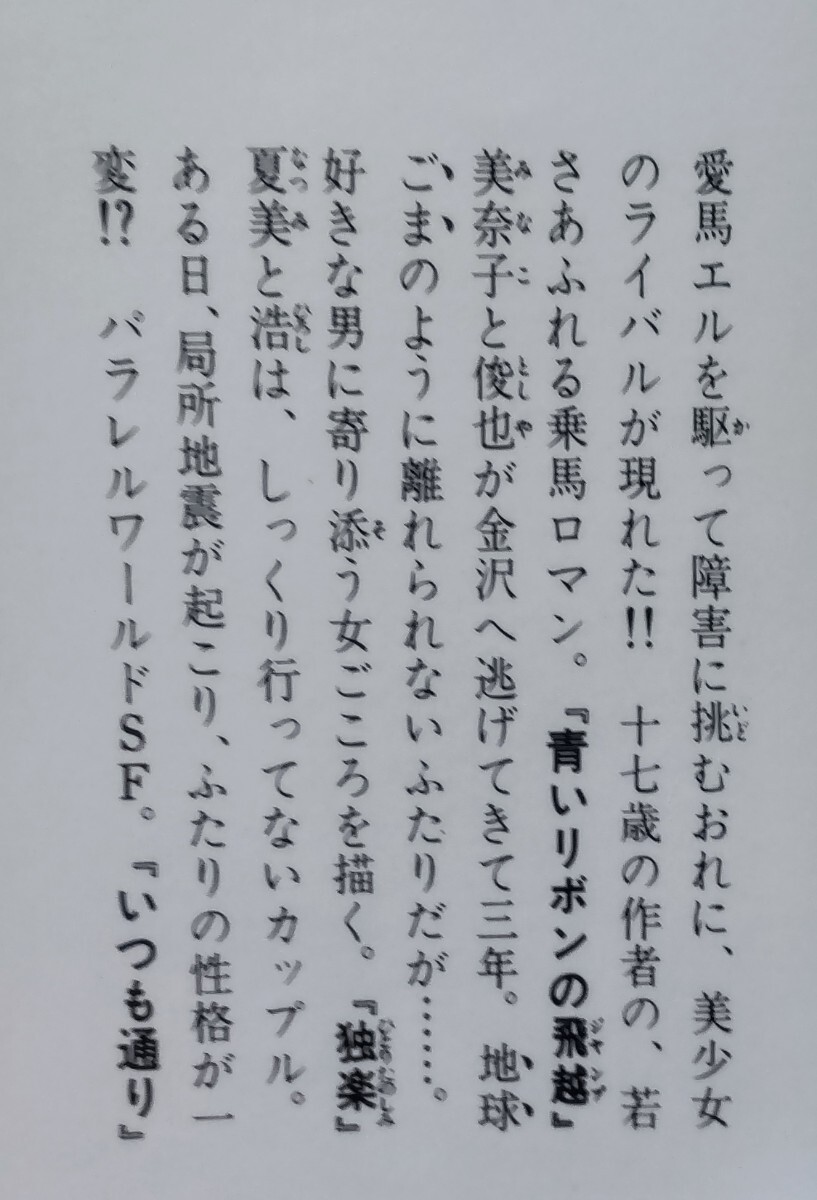 愛馬エルを駆って障害に挑むおれに、美少女
のライバルが現れた!!　十七歳の作者の、若
さあふれる乗馬ロマン。『青いリボンの飛越』
美奈子と俊也が金沢へ逃げてきて三年。地球
ごまのように離れられないふたりだが……。
好きな男に寄り添う女ごころを描く。『独楽』
夏美と浩は、しっくり行ってないカップル。
ある日、局所地震が起こり、ふたりの性格が一
変!?　パラレルワールドSF。『いつも通り』